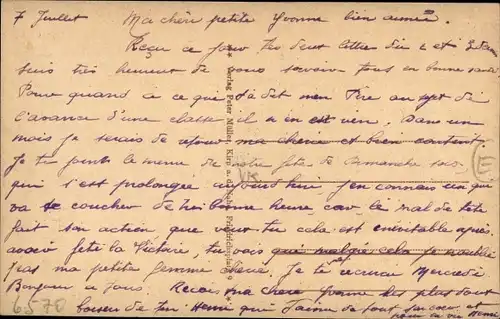 7 Juillet Ma chère petite Yvonne bien aimée.
Reçu ce jour tes deux lettres du 2 et 3
suis très heureux de vous savoir tous en bonne santé
Pour quand à ce que t'a dit mon Père au sujet de
l'avance d'une classe il n'en est rien. Dans un
mois je serais de retour ma chérie et bien content.
Je te joints le menu de notre fête de Dimanche soir
qui s'est prolongée aujourd'hui j'en connais un qui
va se coucher de très bonne heure, car le mal de tête
fait son action, que veux tu cela est inévitable après
avoir fêté la Victoire, tu vois que malgré cela je n'oublie
pas ma petite femme chérie. Je te
Bonjour à tous. Reçois ma chère Yvonne les plus doux
baisers de ton Henri qui t'aime de tout son cœur et
pour la vie Henri
Verlag Peter Müller, Kirn a. d. Nahe
E
6570